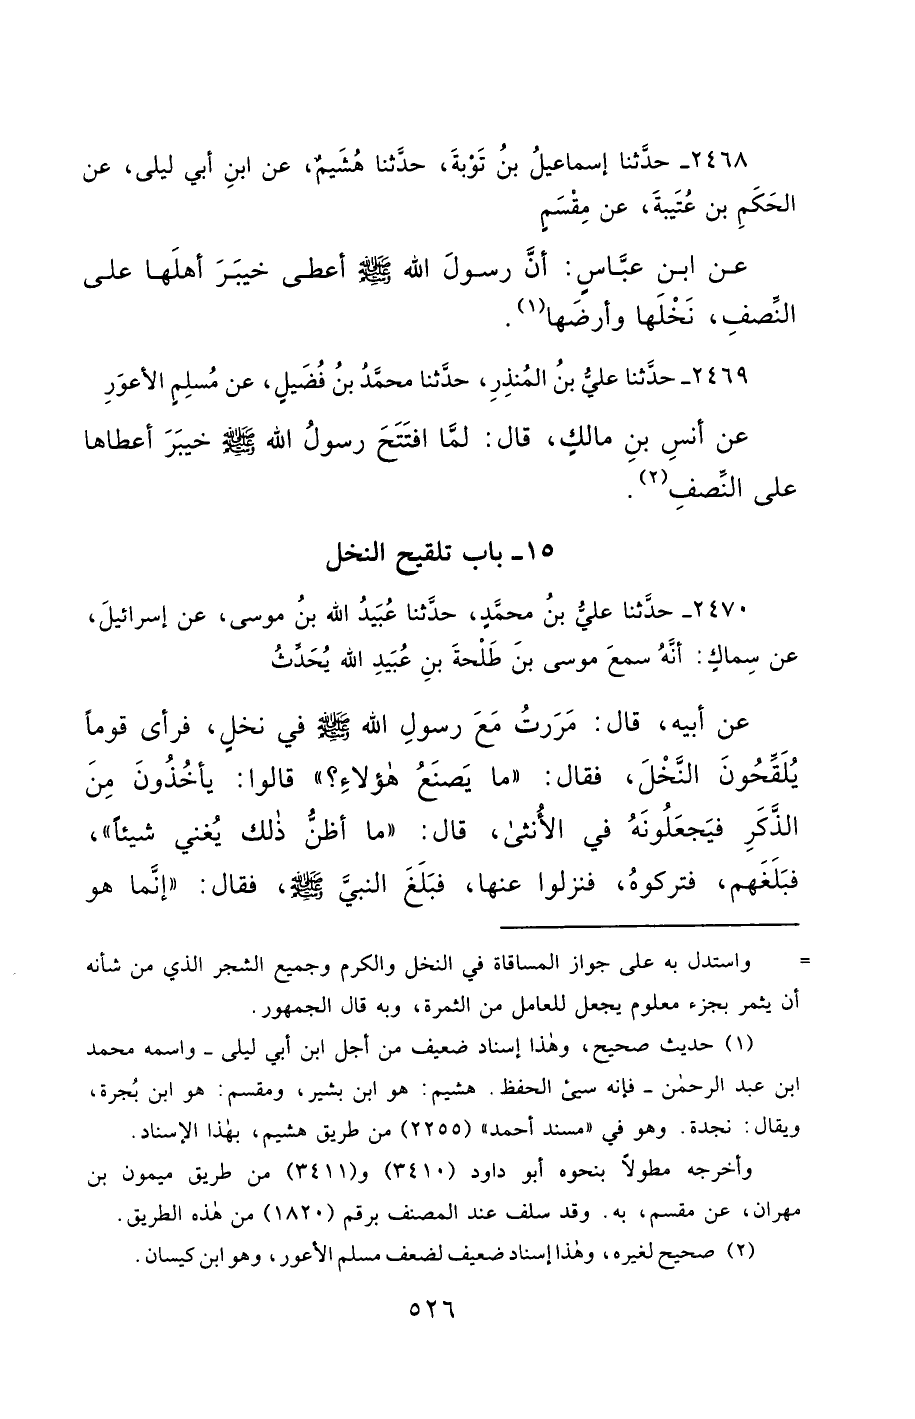 ٢٤٦٨ـ حدَّثنا إسماعيلُ بنُ تَوْبةَ، حدَّثنا هُشَيمٌ، عن ابنِ أبي ليلى، عن
الحَكَمِ بن عُتَيبةَ، عن مِقْسَمٍ
عـن ابـنِ عبَّـاسٍ: أنَّ رسـولَ الله ﷺ أعطـى خيبَـرَ أهلَهـا علـى
النِّصفِ، نَخْلَها وأرضَها(١).
٢٤٦٩ـ حدَّثنا عليُّ بنُ المُنذِرِ، حدَّثنا محمَّدُ بنُ فُضَيلٍ، عن مُسلِمٍ الأعوَرِ
عن أنسِ بنِ مالكٍ، قال: لمَّا افتَتَحَ رسولُ الله ﷺ خيبَرَ أعطاها
على النِّصفِ(٢).
١٥ـ باب تلقيح النخل
٢٤٧٠ـ حدَّثنا عليُّ بنُ محمَّدٍ، حدَّثنا عُبَيدُ الله بنُ موسى، عن إسرائيلَ،
عن سِماكٍ: أنَّهُ سمعَ موسى بنَ طَلْحةَ بنِ عُبَيدِ الله يُحَدِّثُ
عن أبيه، قال: مَرَرتُ مَعَ رسولِ الله ﷺ في نخلٍ، فرأى قوماً
يُلَقِّحُونَ النَّخْلَ، فقال: «ما يَصنَعُ هٰؤلاءِ؟» قالوا: يأخُذُونَ مِنَ
الذَّكَرِ فيَجعَلُونَهُ في الأُنثىٰ، قال: «ما أظنُّ ذٰلك يُغني شيئاً»،
فبَلَغَهم، فتركوهُ، فنزلوا عنها، فبَلَغَ النبيَّ ﷺ، فقال: «إنَّما هو
= واستدل به على جواز المساقاة في النخل والكرم وجميع الشجر الذي من شأنه
أن يثمر بجزء معلوم يجعل للعامل من الثمرة، وبه قال الجمهور.
(١) حديث صحيح، وهٰذا إسناد ضعيف من أجل ابن أبي ليلى ـ واسمه محمد
ابن عبد الرحمٰن ـ فإنه سيئ الحفظ. هشيم: هو ابن بشير، ومقسم: هو ابن بُجرة،
ويقال: نجدة. وهو في «مسند أحمد» (٢٢٥٥) من طريق هشيم، بهٰذا الإسناد.
وأخرجه مطولاً بنحوه أبو داود (٣٤١٠) و(٣٤١١) من طريق ميمون بن
مهران، عن مقسم، به. وقد سلف عند المصنف برقم (١٨٢٠) من هٰذه الطريق.
(٢) صحيح لغيره، وهٰذا إسناد ضعيف لضعف مسلم الأعور، وهو ابن كيسان.
٥٢٦